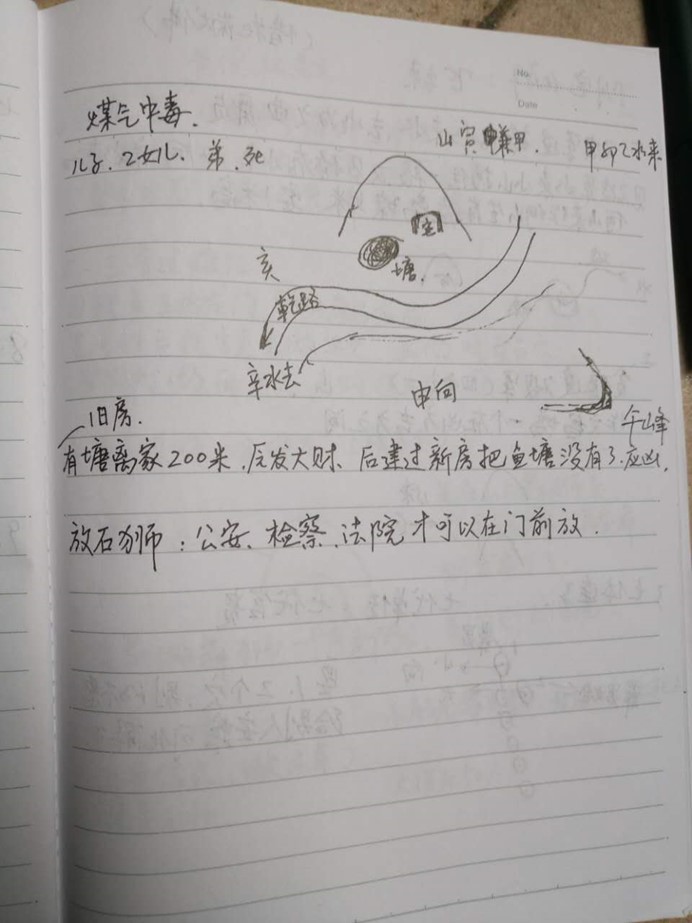 No.
Date
煤气中毒.
儿子.2女儿.弟.死
山寅兼甲. 甲卯乙水来
宅
塘.
亥
乾路
辛水去
申向
午山峰
旧房.
有塘离家200米.后发大财. 后建过新房把鱼塘没有了.应凶.
放石狮:公安、检察、法院才可以在门前放.